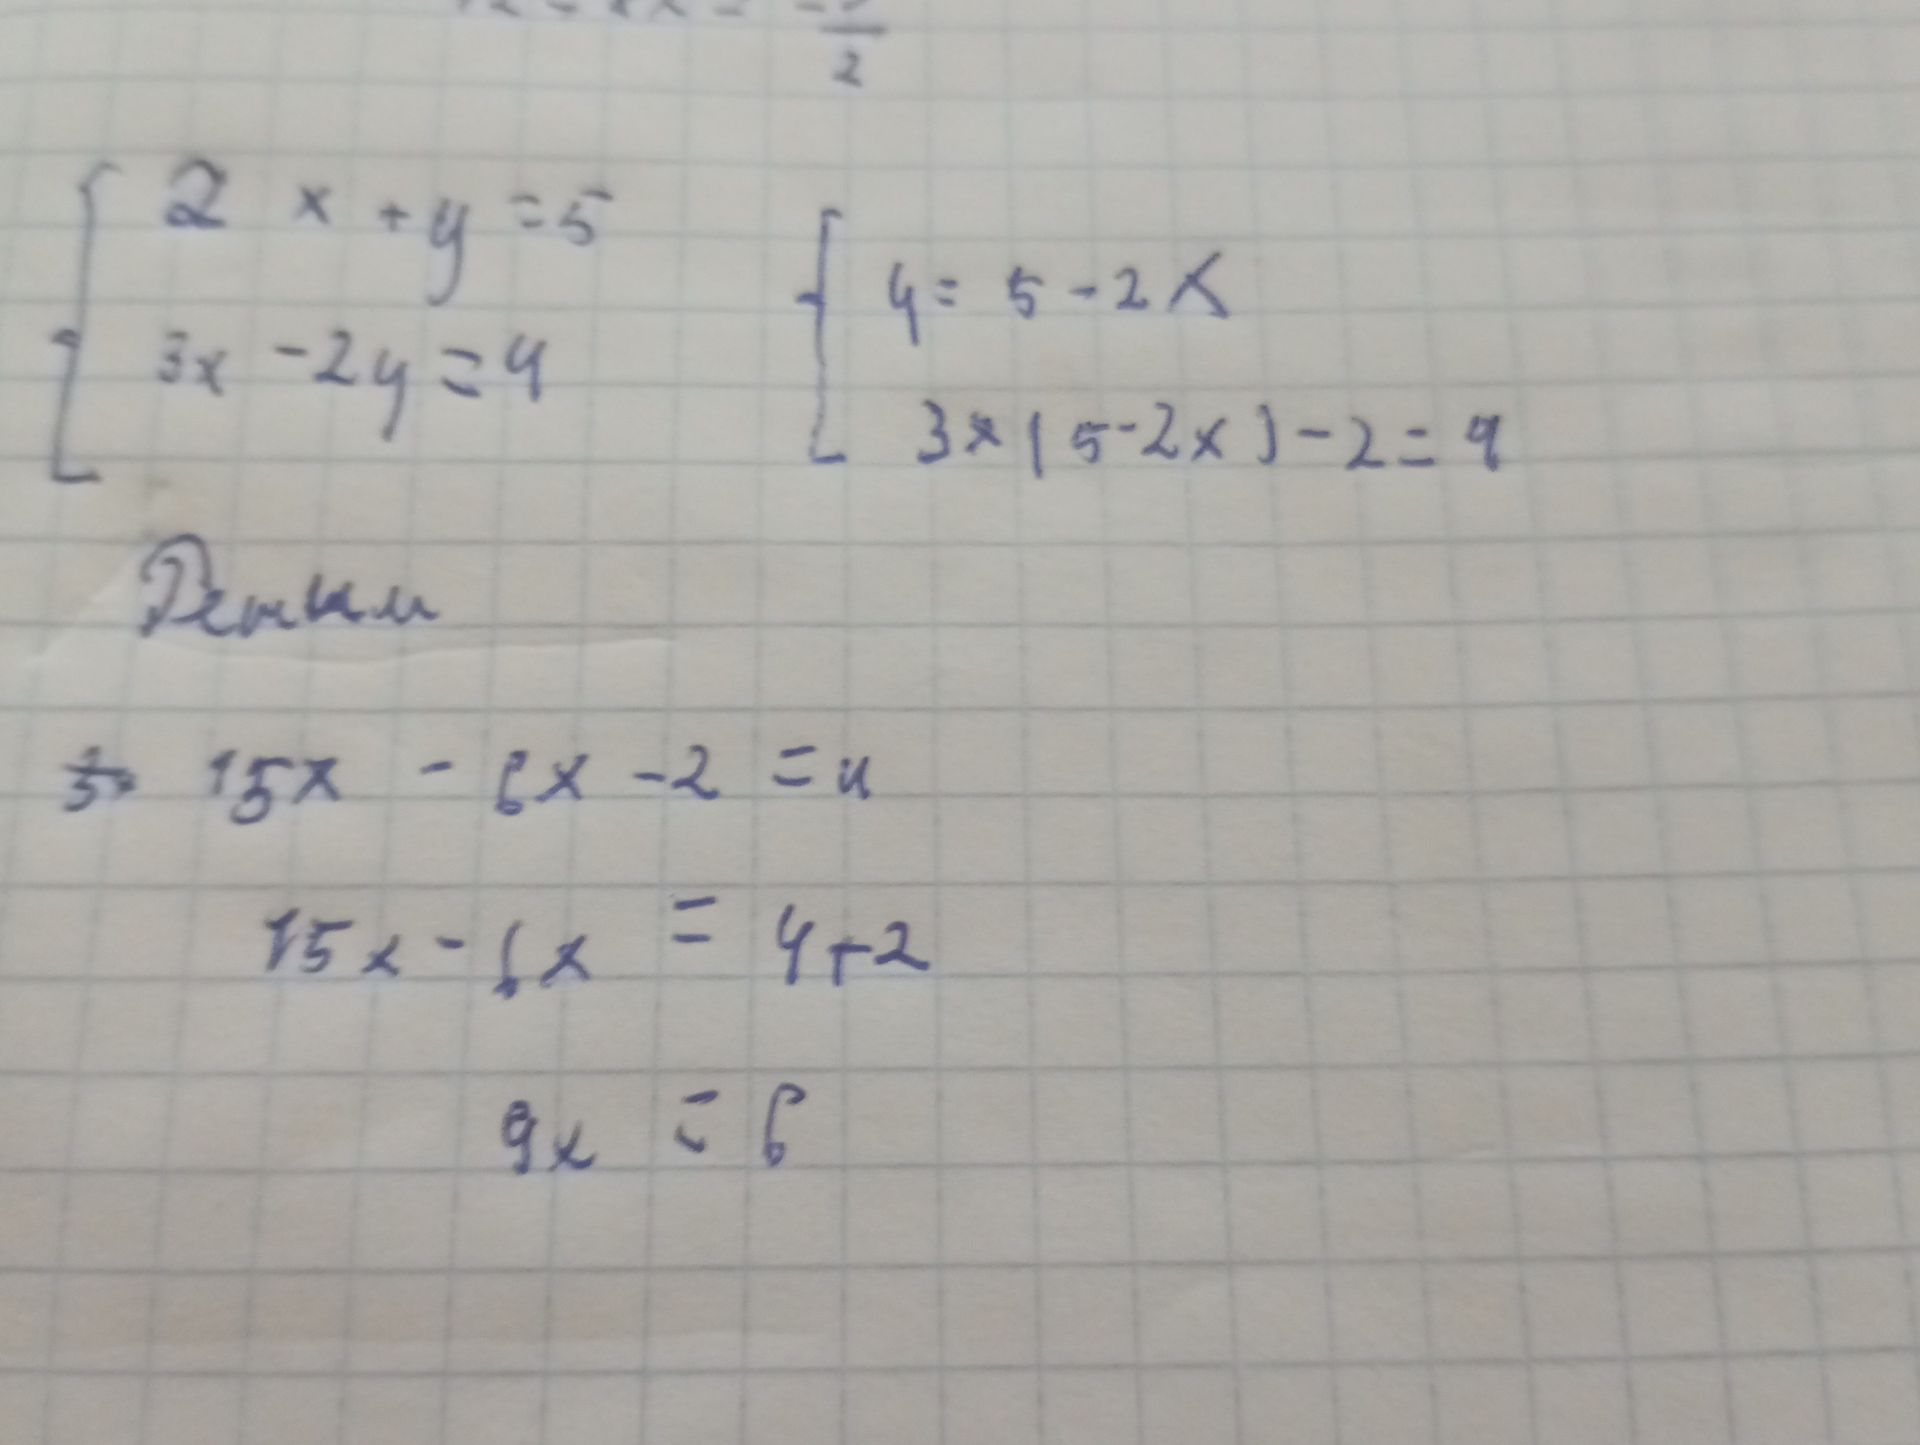 2
{ 2x + y = 5
3x - 2y = 4
{ y = 5 - 2x
3x (5 - 2x) - 2 = 4
15x - 6x - 2 = 4
15x - 6x = 4 + 2
9x = 6